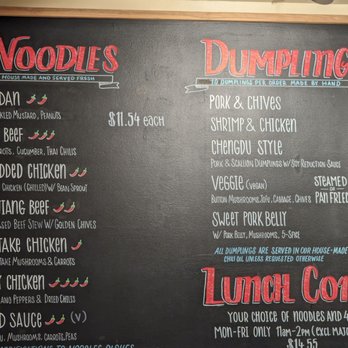 NOODLES
HOUSE MADE AND SERVED FRESH
DAN
MUSTARD, PEANUTS
$11.54 each
BEEF
CUCUMBER, THAI CHILIS
CHICKEN
CHICKEN (CHILLED) W/ BEAN SPROUT
BEEF
BEEF STEW W/ GOLDEN CHIVES
CHICKEN
MUSHROOMS & CARROTS
CHICKEN
AND PEPPERS & DRIED CHILIS
SAUCE (V)
MUSHROOMS, CARROTS, PEAS
DUMPLING
10 DUMPLINGS PER ORDER, MADE BY HAND
PORK & CHIVES
SHRIMP & CHICKEN
CHENGDU STYLE
PORK & SCALLION DUMPLINGS W/ SOY REDUCTION SAUCE
VEGGIE (VEGAN)
BUTTON MUSHROOMS, TOFU, CABBAGE, CHIVES
STEAMED
OR
PAN FRIED
SWEET PORK BELLY
W/ PORK BELLY, MUSHROOMS, 5-SPICE
ALL DUMPLINGS ARE SERVED IN OUR HOUSE-MADE
CHILI OIL UNLESS REQUESTED OTHERWISE
LUNCH CO
YOUR CHOICE OF NOODLES AND 4
MON-FRI ONLY 11AM-2PM (EXCL
$14.55